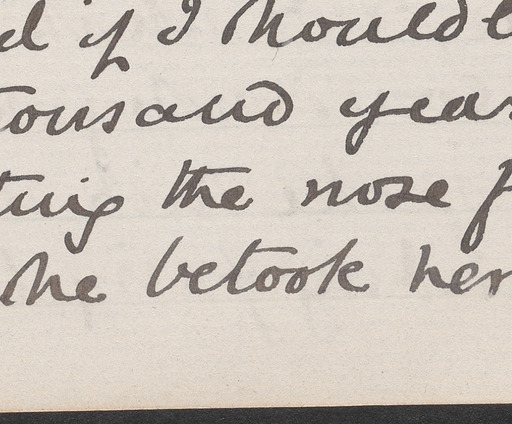 d if I should
ousand years
ting the nose f
she betook her